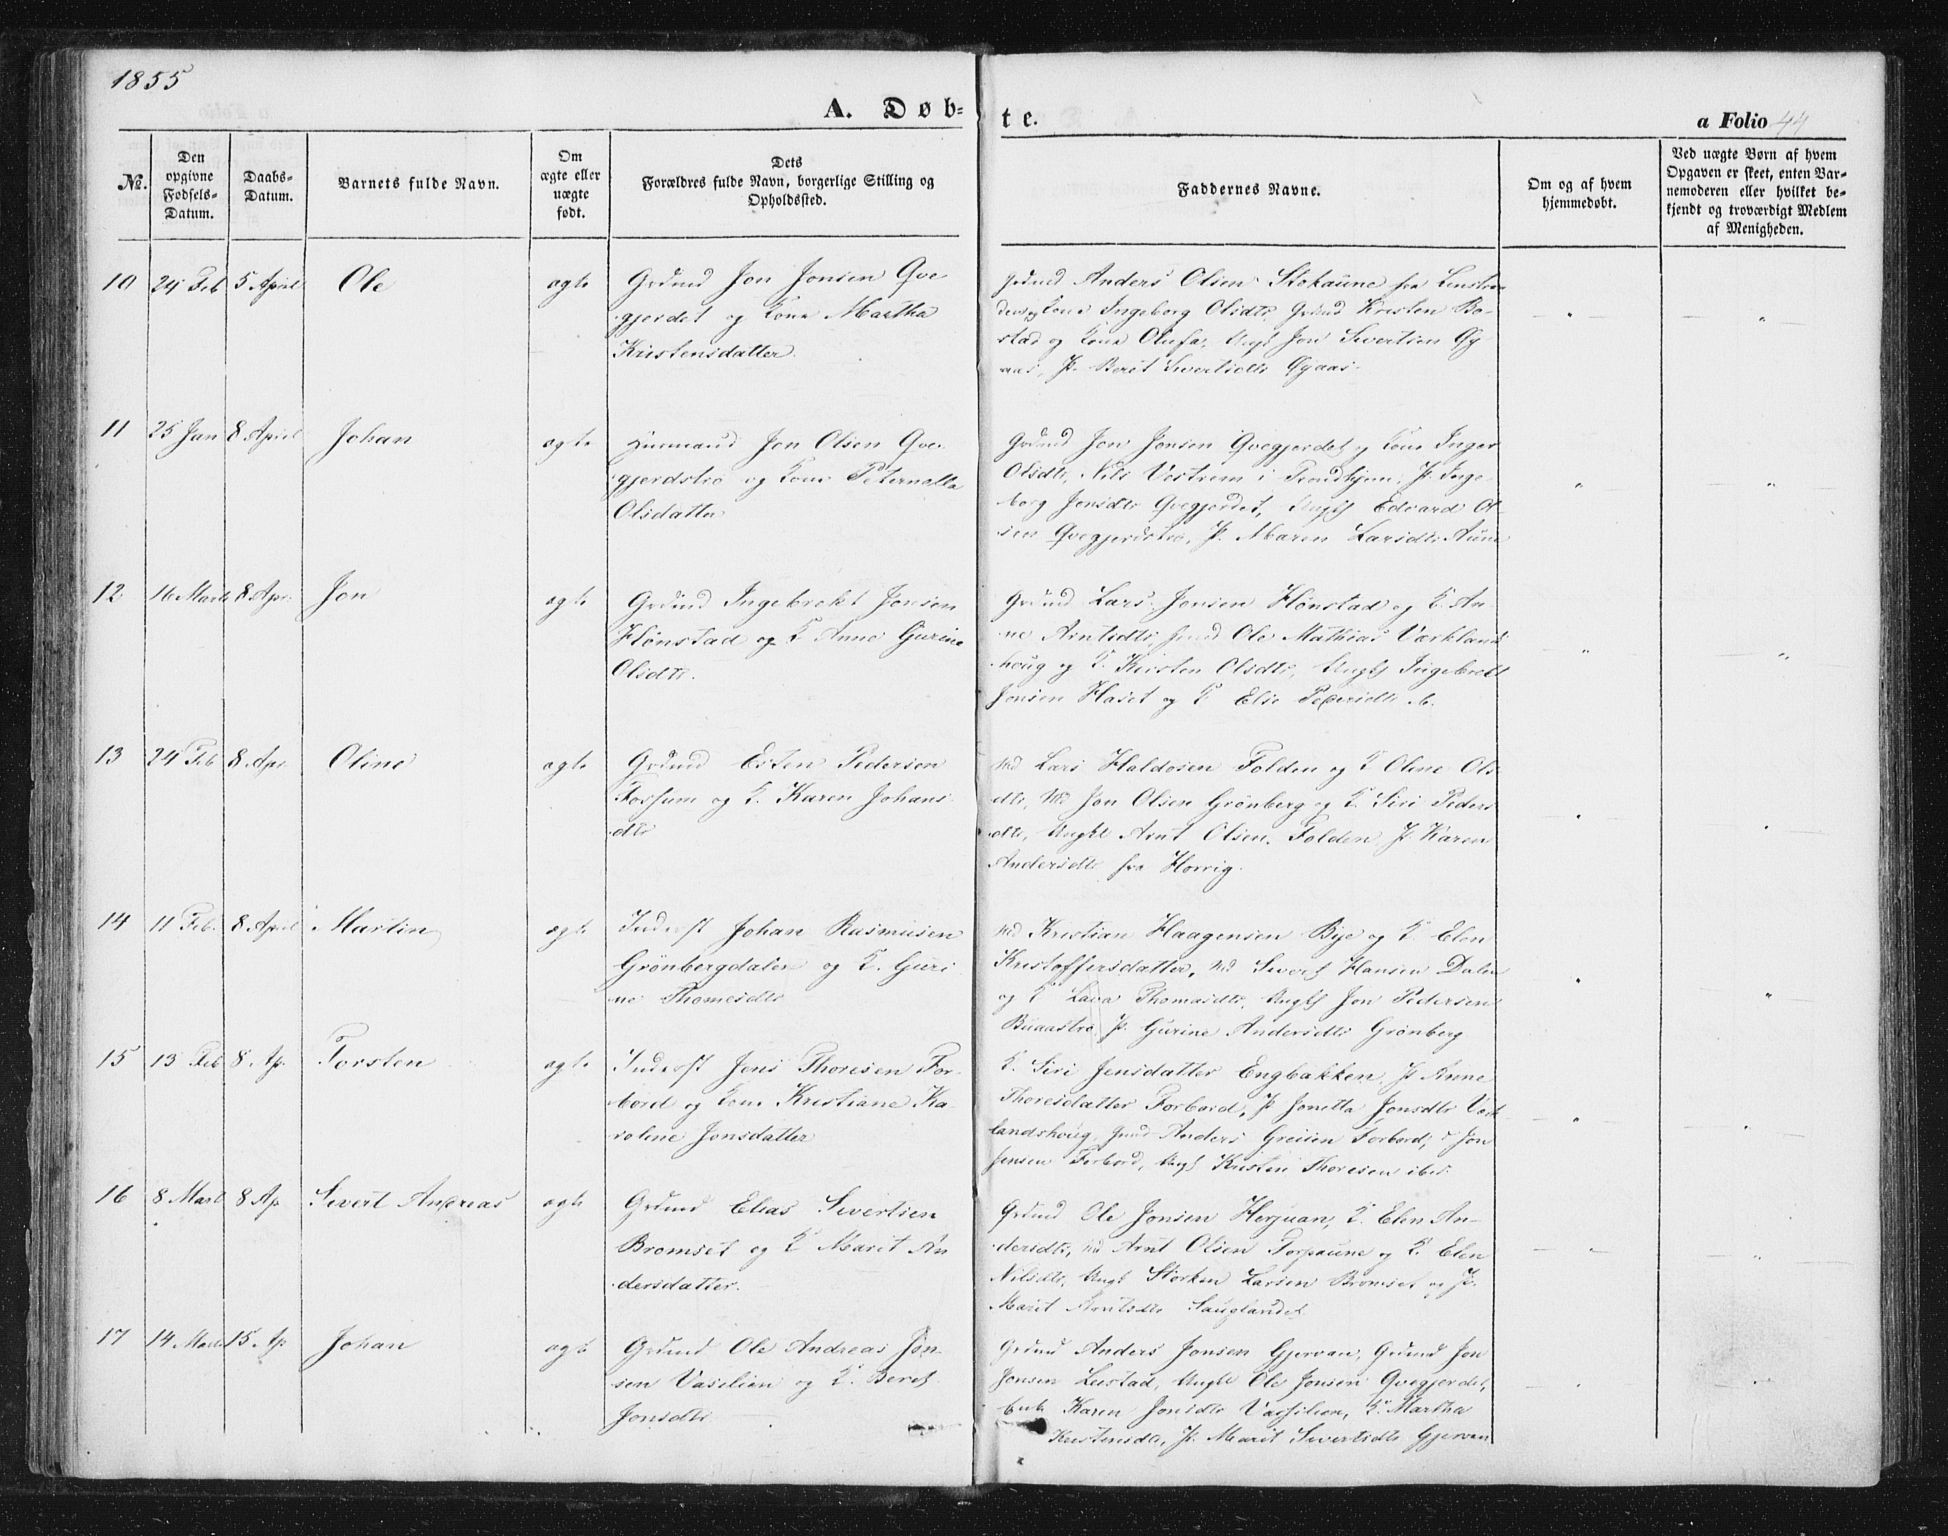 1855
A. Døbte.
a Folio 44
No.
Den opgivne Fødsels-Datum.
Daabs-Datum.
Barnets fulde Navn.
Om ægte eller uægte født.
Dets Forældres fulde Navn, borgerlige Stilling og Opholdssted.
Faddernes Navne.
Om og af hvem hjemmedøbt.
Ved uægte Børn af hvem Opgaven er skeet, enten Barnemoderen eller hvilket bekjendt og troværdigt Medlem af Menigheden.
10 24 Feb 5 April Ole ægte
Grdmd Jon Jonsen Qve-
gjerdet og Kone Martha
Kristensdatter.
Grdmd Anders Olsen Stokaune fra
Kone Ingeborg Olsdtr, Grdmd Kristen Bo-
stad og Kone Olufa, Ungk Jon Sivertsen Gy-
aas, P. Berit Sivertsdtr Gyaas.
11 25 Jan 8 April Johan ægte
Husmand Jon Olsen Qve-
gjerdstrø og Kone Peternella
Olsdatter
Grdmd Jon Jonsen Qvegjerdet og Kone Inger
Olsdtr, Nils Vestrem i Trondhjem, P. Inge-
borg Jonsdtr Qvegjerdet, Ungk Edvard Ol-
sen Qvegjerdstrø, P. Maren Larsdtr Aune
12 16 Marts 8 Apr. Jon ægte
Grdmd Ingebrekt Jonsen
Hønstad og K. Anne Gurine
Olsdtr.
Grdmd Lars Jonsen Hønstad og K. An-
ne Arntsdtr, Ole Mathias Værklands-
houg og K. Kirsten Olsdtr, Ungk Ingebrekt
Jonsen Haset og P Elie Pedersdtr ib.
13 24 Feb 8 Apr. Oline ægte
Grdmd Esten Pedersen
Forssum og K. Karen Johans-
dtr
Md Lars Haldosen Folden og K Oline Ols-
dtr, Md Jon Olsen Grönberg og K. Siri Peders-
dtr, Ungkl Arnt Olsen Folden, P. Karen
Andersdtr fra Horrig.
14 11 Feb. 8 April Martin ægte
Inderst Johan Rasmusen
Grönbergdalen og K. Guri-
ne Thomesdtr
Md Kristian Haagensen Bye og K. Elen
Kristoffersdatter, Md Sivert Hansen Dalen
og K Lava Thomasdtr, Ungk Jon Pedersen
Buaastrø, P. Gurine Andersdtr Grönberg
15 13 Feb 8 Ap. Torsten ægte
Inderst Jens Thoresen For-
bord og Kone Kristiane Ka-
roline Jonsdatter
K. Siri Jensdatter Engbakken, P. Anne
Thoresdatter Forbord, P. Jonetta Jonsdtr Værk-
landshoug, Anders Greisen Forbord, Jon
Jensen Forbord, Ungk Kristen Thoresen ibid.
16 8 Marts 8 Ap Sivert Andreas ægte
Grdmd Elias Sivertsen
Bromset og K Marit An-
dersdatter.
Grdmd Ole Jonsen Herjuan, K. Elen An-
dersdtr, Md Arnt Olsen Torpaune og K. Elen
Nilsdtr, Ungk Storker Larsen Bromset og P.
Marit Arntsdtr Sauglandet
17 14 Marts 15 Ap Johan ægte
Grdmd Ole Andreas Jon-
sen Vasslien og K. Beret
Jonsdtr.
Grdmd Anders Jonsen Gjervan, Grdmd Jon
Jonsen Leistad, Ungkl Ole Jonsen Qvegjerdet,
Karen Jonsdtr Vasslien, K. Martha
Kristensdtr, P. Marit Sivertsdtr Gjervan